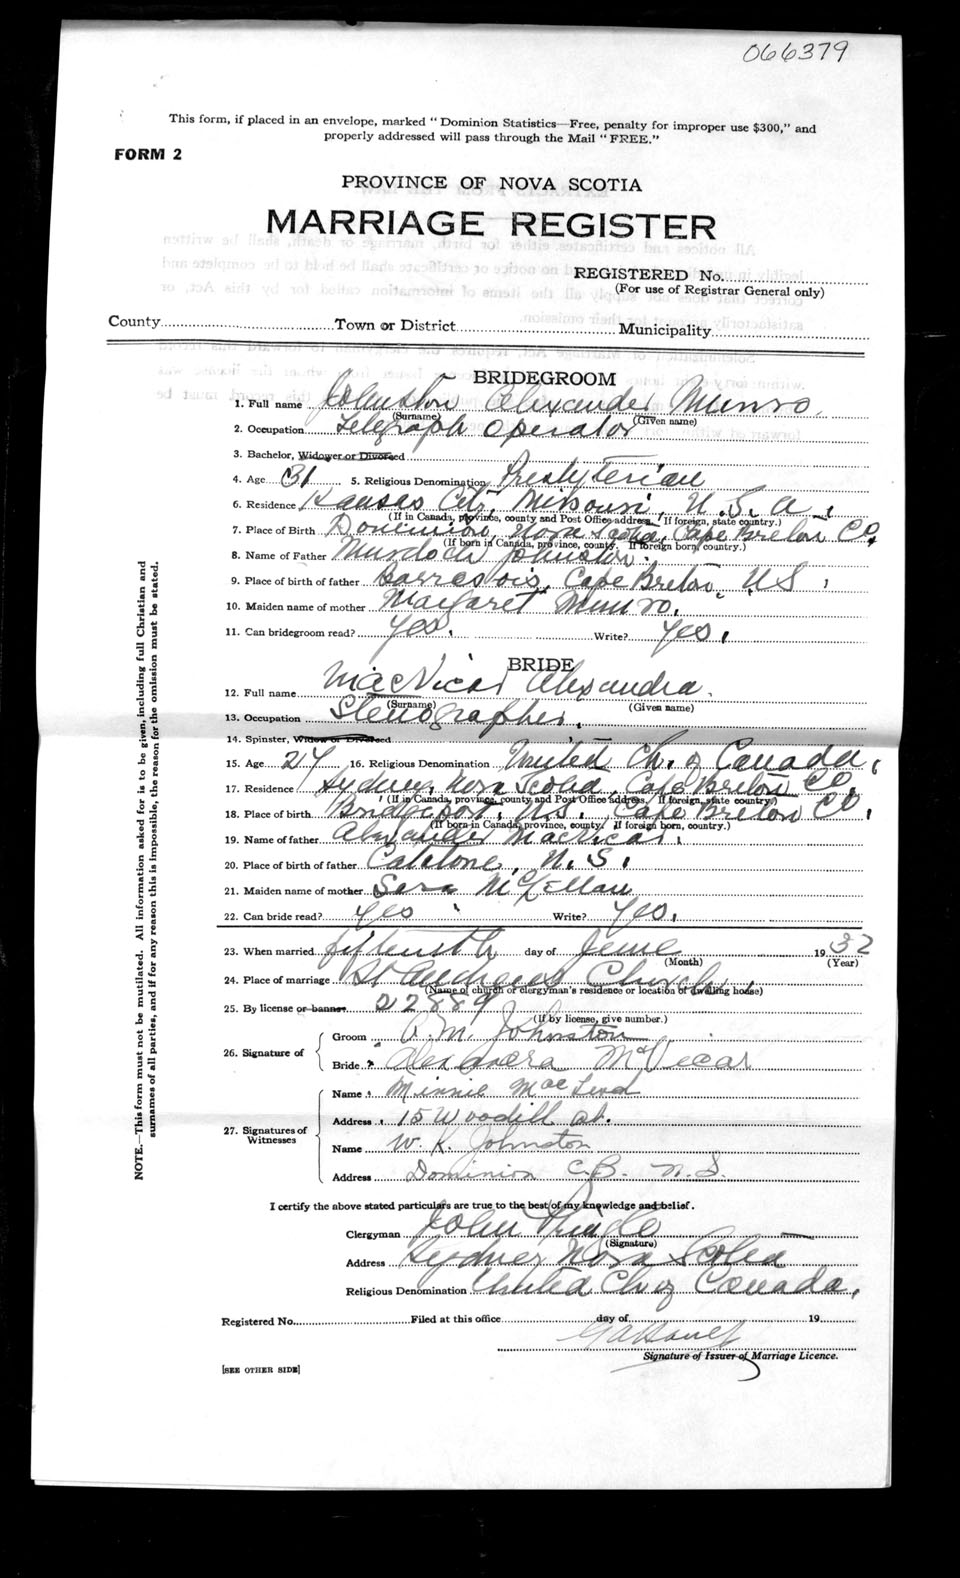 066379
This form, if placed in an envelope, marked "Dominion Statistics—Free, penalty for improper use $300," and
properly addressed will pass through the Mail "FREE."
FORM 2
PROVINCE OF NOVA SCOTIA
MARRIAGE REGISTER
REGISTERED No.
(For use of Registrar General only)
County Town or District Municipality
BRIDEGROOM
1. Full name Johnston Alexander Munro.
(Surname) (Given name)
2. Occupation Telegraph Operator
3. Bachelor, Widower or Divorced
4. Age 31 5. Religious Denomination Presbyterian
6. Residence Kansas City, Missouri, U.S.A.
(If in Canada, province, county and Post Office address. If foreign, state country.)
7. Place of Birth Dominion, Nova Scotia, Cape Breton Co,
(If born in Canada, province, county. If foreign born, country.)
8. Name of Father Murdoch Johnston.
9. Place of birth of father Cape Breton, N.S.
10. Maiden name of mother Margaret Munro.
11. Can bridegroom read? Yes. Write? Yes.
BRIDE
12. Full name MacVicar Alexandra.
(Surname) (Given name)
13. Occupation Stenographer.
14. Spinster, Widow or Divorced
15. Age 24 16. Religious Denomination United Ch. of Canada.
17. Residence Sydney, Nova Scotia, Cape Breton Co.
(If in Canada, province, county and Post Office address. If foreign, state country.)
18. Place of birth Bridgeport, N.S., Cape Breton Co.
(If born in Canada, province, county. If foreign born, country.)
19. Name of father Alexander MacVicar.
20. Place of birth of father Catalone, N.S.
21. Maiden name of mother Sara McLellan
22. Can bride read? Yes Write? Yes.
23. When married fifteenth day of June 1932
(Month) (Year)
24. Place of marriage St Andrews Church,
(Name of church or clergyman's residence or location of dwelling house)
25. By license or banns 22889
(If by license, give number.)
26. Signature of
Groom A. M. Johnston
Bride Alexandra McVicar
27. Signatures of Witnesses
Name Minnie MacLeod
Address 15 Woodill St.
Name W. K. Johnston
Address Dominion C.B. N.S.
I certify the above stated particulars are true to the best of my knowledge and belief.
Clergyman John Pringle
(Signature)
Address Sydney Nova Scotia
Religious Denomination United Ch of Canada.
Registered No. Filed at this office day of 19
Signature of Issuer of Marriage Licence.
[SEE OTHER SIDE]
NOTE.—This form must not be mutilated. All information asked for is to be given, including full Christian and
surnames of all parties, and if for any reason this is impossible, the reason for the omission must be stated.